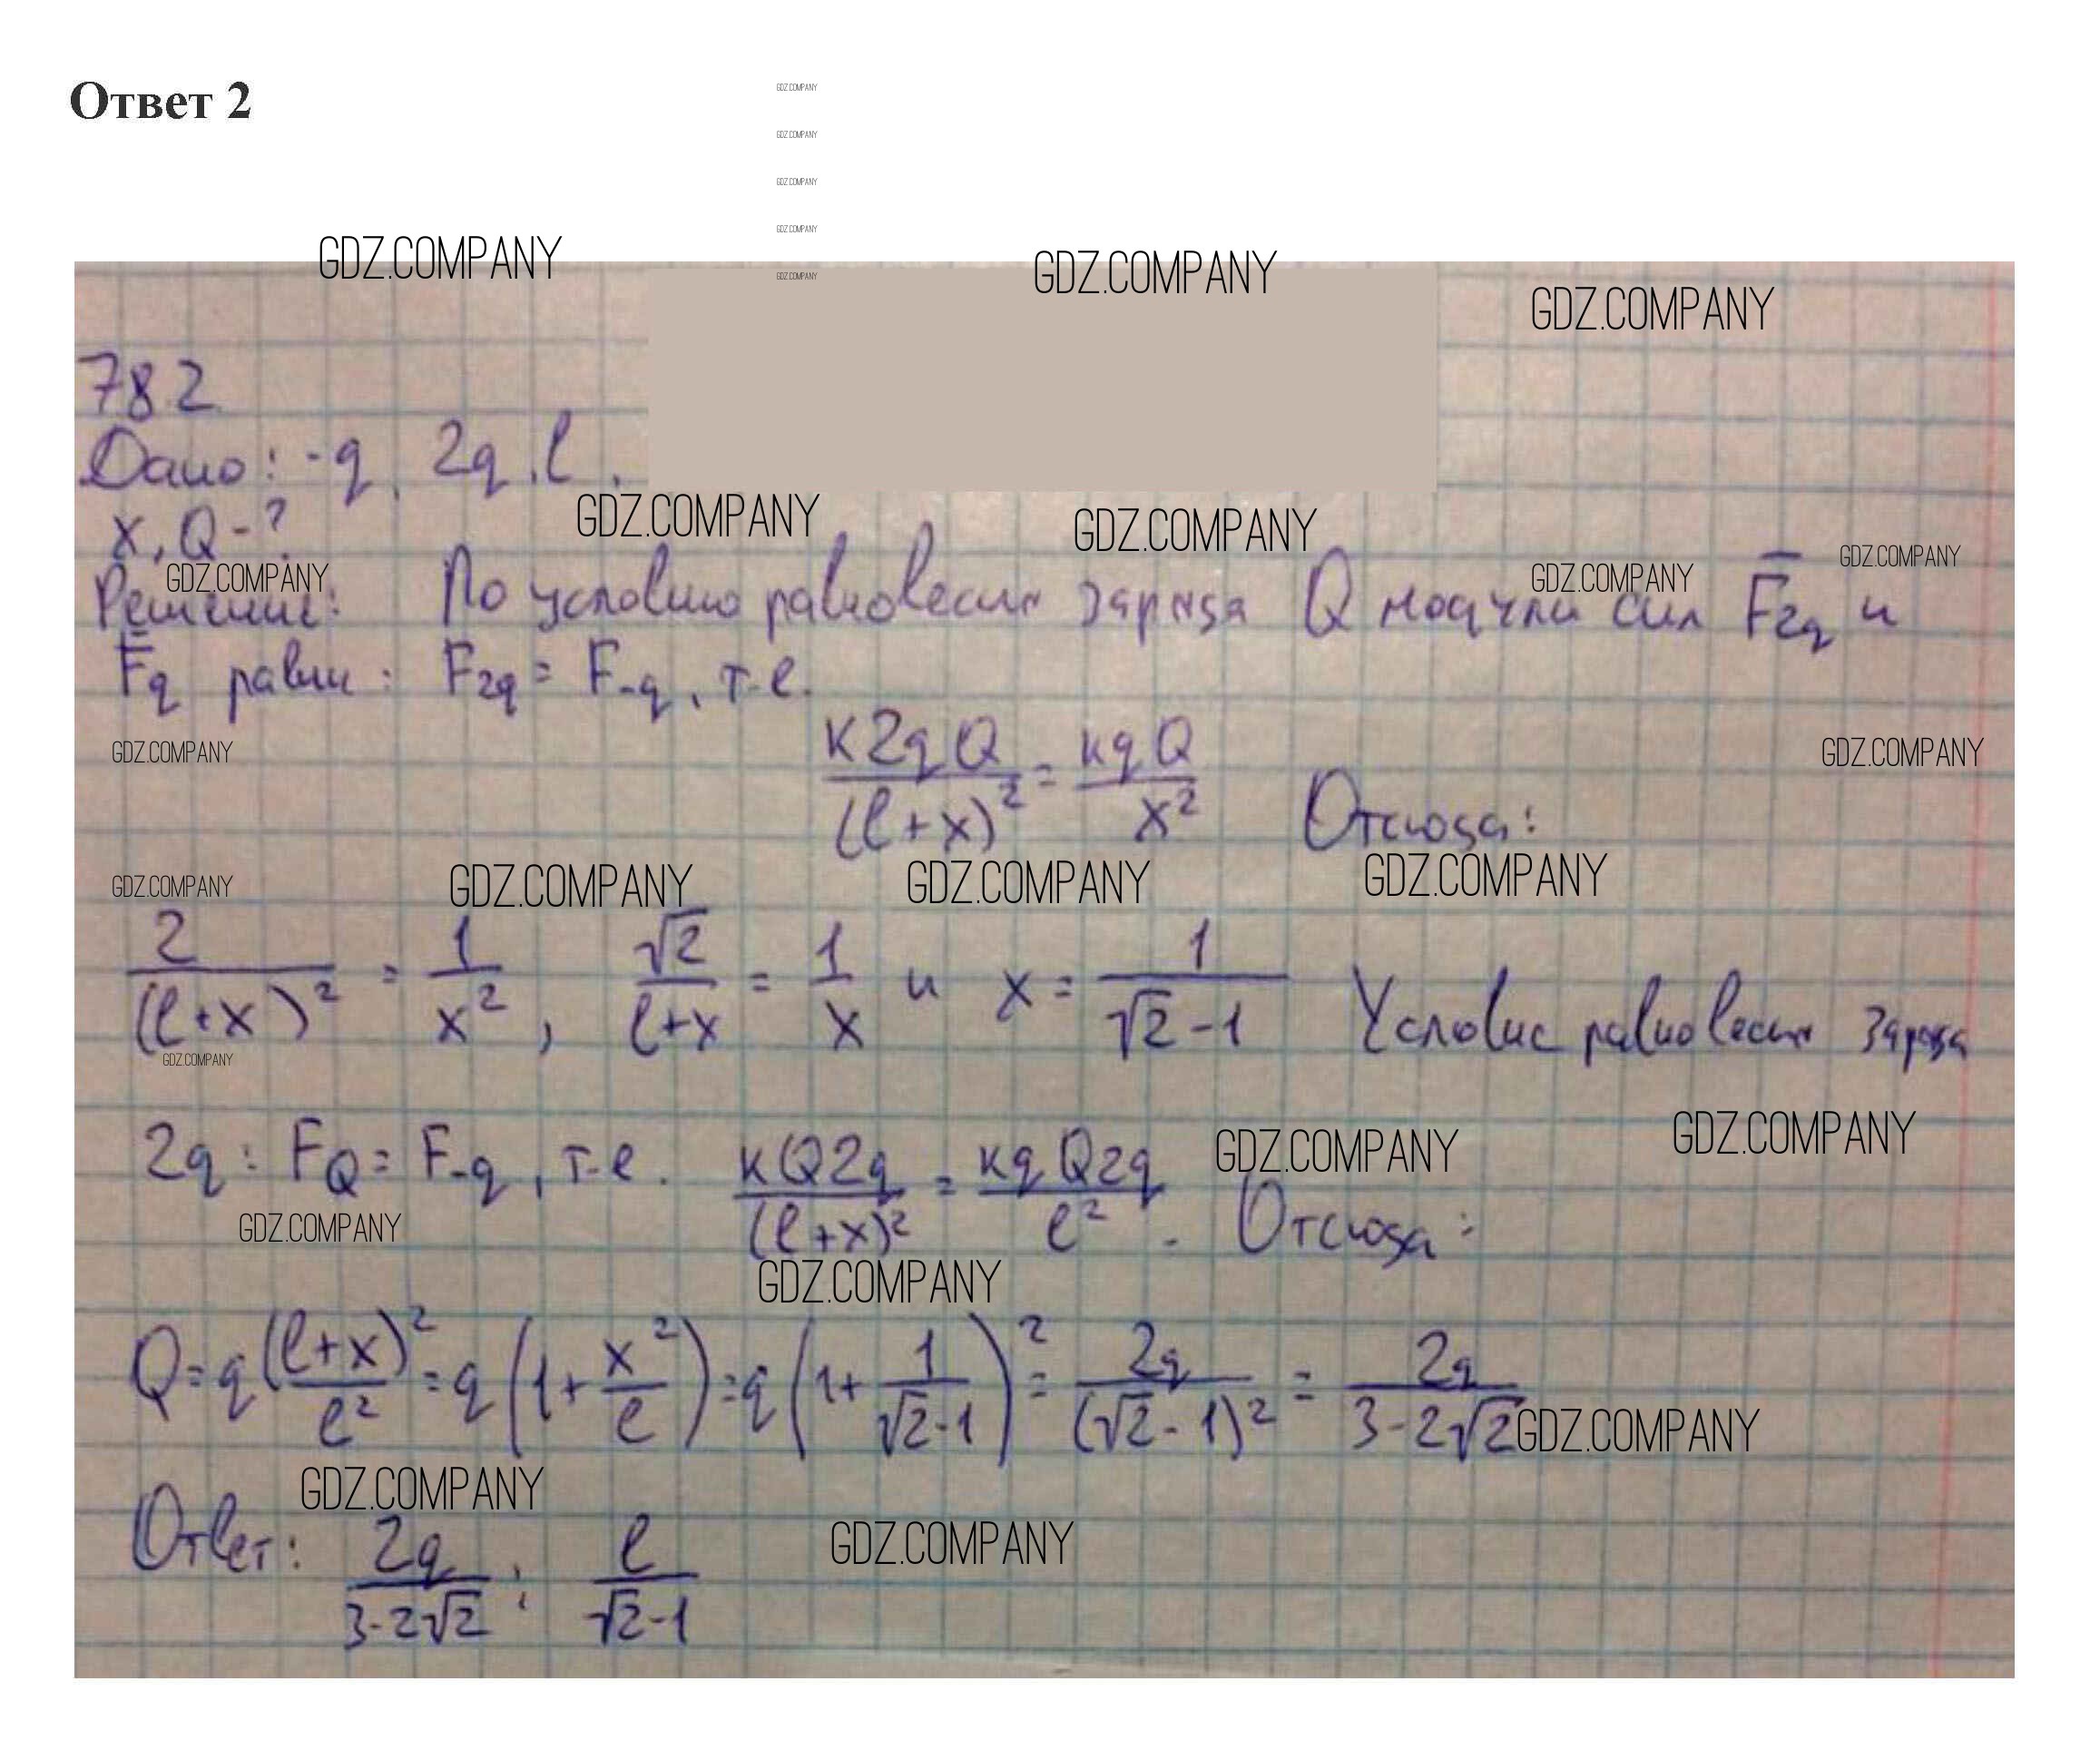 Ответ 2
GDZ.COMPANY
GDZ.COMPANY
GDZ.COMPANY
GDZ.COMPANY
GDZ.COMPANY
GDZ.COMPANY
GDZ.COMPANY
GDZ.COMPANY
782
Дано: -q, 2q, l.
GDZ.COMPANY
GDZ.COMPANY
x, Q - ?
GDZ.COMPANY
GDZ.COMPANY
GDZ.COMPANY
Решение: По условию равновесия заряда Q модули сил F̅2q и
F̅q равны: F2q = F-q, т.е.
k2qQ/(l+x)² = kqQ/x² Отсюда:
GDZ.COMPANY
GDZ.COMPANY
GDZ.COMPANY
GDZ.COMPANY
GDZ.COMPANY
GDZ.COMPANY
2/(l+x)² = 1/x², √2/(l+x) = 1/x и x = 1/(√2-1) Условие равновесия заряда
GDZ.COMPANY
2q: FQ = F-q, т.е. kQ2q/(l+x)² = kqQ2q/l². Отсюда:
GDZ.COMPANY
GDZ.COMPANY
GDZ.COMPANY
GDZ.COMPANY
Q = q(l+x)²/l² = q(1+x²/l) = q(1+1/(√2-1))² = 2q/(√2-1)² = 2q/(3-2√2)
GDZ.COMPANY
GDZ.COMPANY
Ответ: 2q/(3-2√2); l/(√2-1)
GDZ.COMPANY